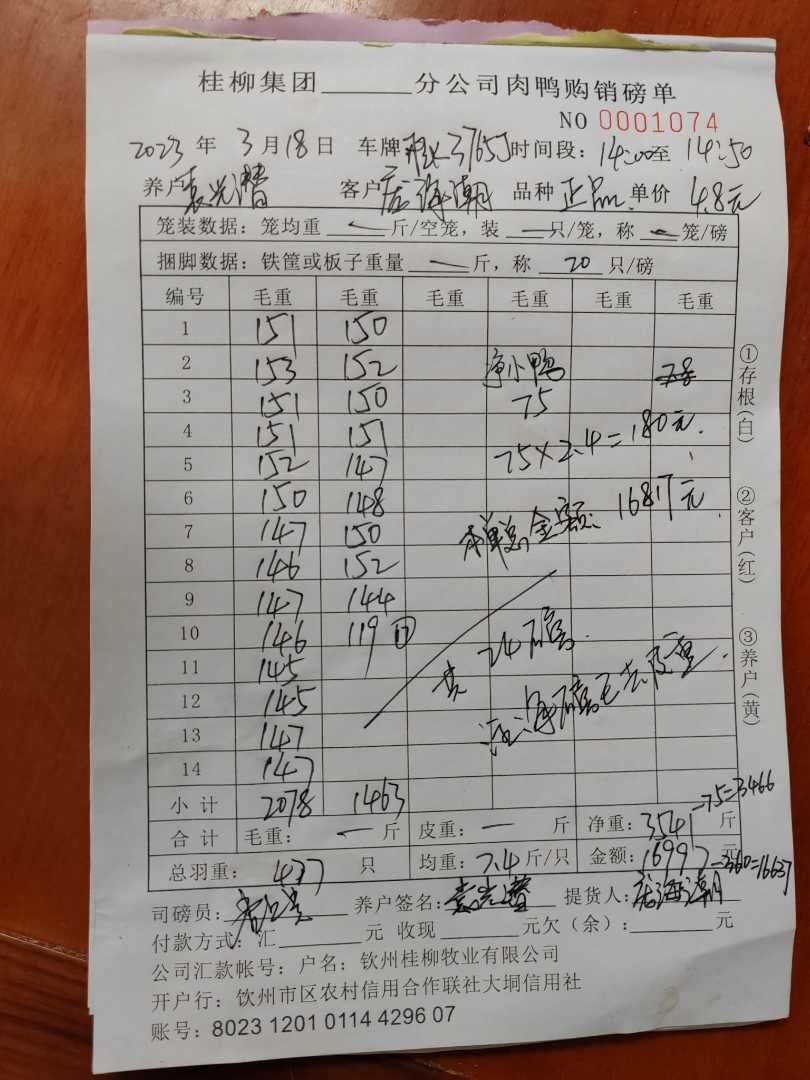 桂柳集团______分公司肉鸭购销磅单
NO 0001074
2023年 3月18日 车牌 3765J 时间段：14:00至 14:50
养户 客户 海潮 品种 正品 单价 4.8元
笼装数据：笼均重 — 斤/空笼，装 — 只/笼，称 — 笼/磅
捆脚数据：铁筐或板子重量 — 斤，称 20 只/磅
编号 毛重 毛重 毛重 毛重 毛重 毛重
1 151 150
2 153 152 小鸭
3 151 150 75
4 151 151 75×2.4=180元.
5 152 147
6 150 148 单总金额: 16817元
7 147 150
8 146 152
9 147 144
10 146 119 ⑰ 共 24磅.
11 145 每磅已去皮重.
12 145
13 147
14 147
小计 2078 1463
合计 毛重：— 斤 皮重：— 斤 净重：3541 斤 -75=3466
总羽重： 477 只 均重：7.4 斤/只 金额：16997 元 -360=16637
司磅员： 养户签名： 提货人： 海潮
付款方式：汇______元 收现______元欠（余）：______元
公司汇款帐号：户名：钦州桂柳牧业有限公司
开户行：钦州市区农村信用合作联社大垌信用社
账号：8023 1201 0114 4296 07
①存根(白)
②客户(红)
③养户(黄)